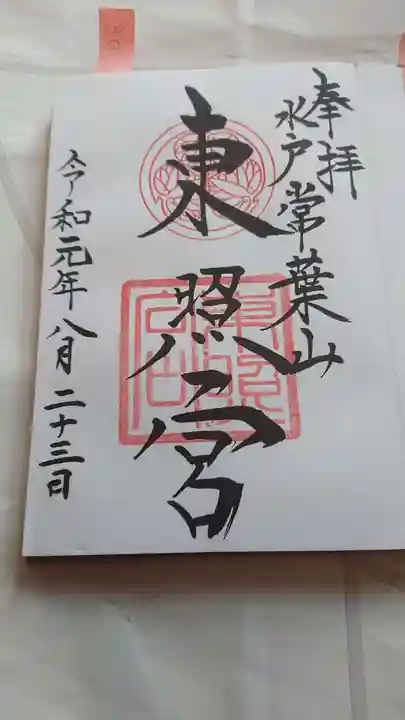 奉拝
水戸常葉山
東照宮
令和元年八月二十三日